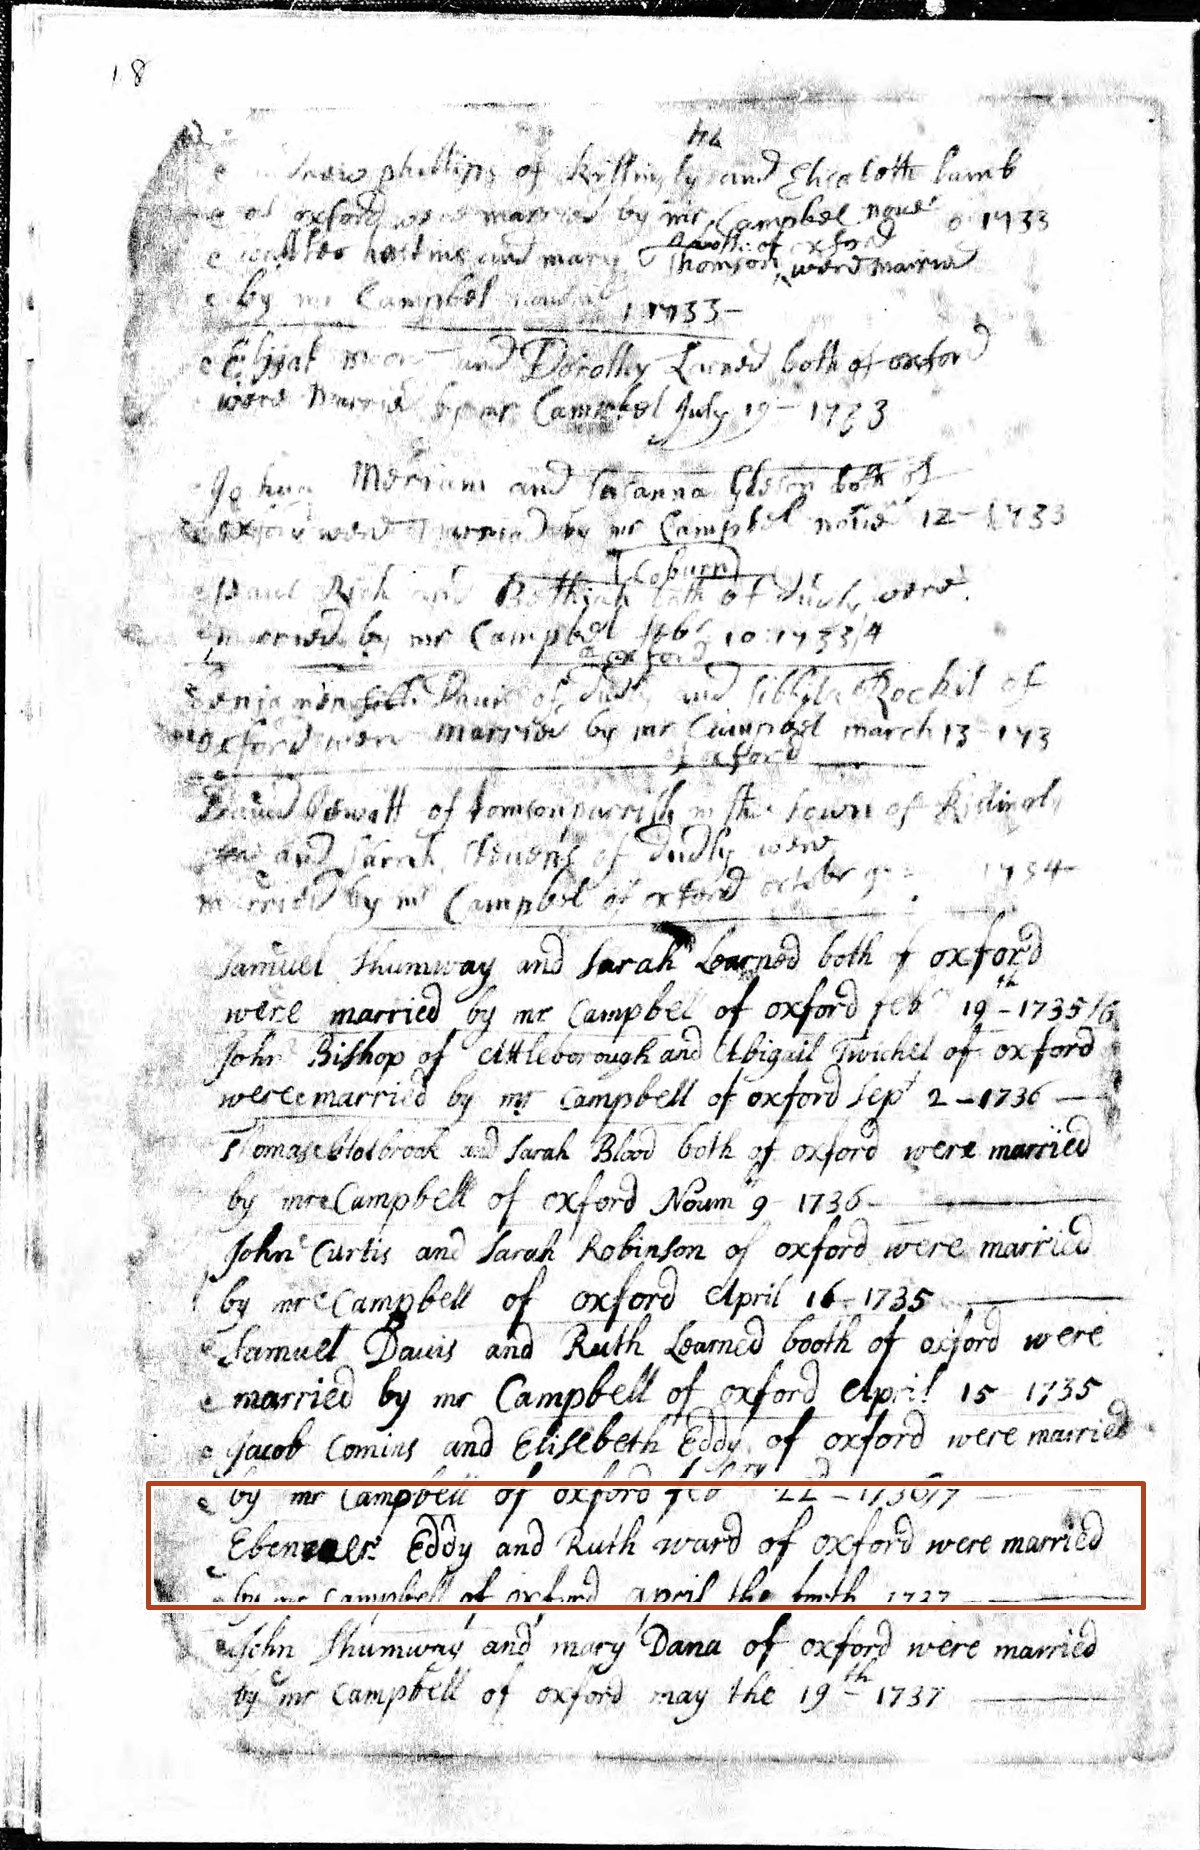 18
phillips of Killingly and Elicabeth Lamb
of oxford were married by mr Campbel 1733
both of oxford
and mary Thomson were married
by mr Campbel 1733
Elijah and Dorothy Larned both of oxford
were Married by mr Campbel July 19 - 1733
Merriam and Susanna Gleson both of
oxford were married by mr Campbel 12 - 1733
Coburn
Paul Rich and Bethiah both of were
married by mr Campbel feb 10: 1733/4
of oxford
Davis of and Sibbyla Rockit of
oxford were married by mr Campbel march 13 - 173
of oxford
of tomson parrish in the town of
and Sarah Stevens of Dudly were
married by mr Campbel of oxford octobr 1734
Samuel Shumway and Sarah Learned both of oxford
were married by mr Campbel of oxford feb 19th - 1735/6
John Bishop of Attleborough and Abigail Twichel of oxford
were married by mr Campbell of oxford Sept 2 - 1736
Thomas Holbrook and Sarah Blood both of oxford were married
by mr Campbell of oxford Novm 9 - 1736
John Curtis and Sarah Robinson of oxford were married
by mr Campbell of oxford April 16 - 1735
Samuel Davis and Ruth Learned booth of oxford were
married by mr Campbell of oxford April 15 1735
Jacob Comins and Elisebeth Eddy of oxford were married
by mr Campbell of oxford feb 22 - 1736/7
Ebenezer Eddy and Ruth ward of oxford were married
by mr Campbell of oxford april the 1737
John Shumway and mary Dana of oxford were married
by mr Campbell of oxford may the 19th - 1737